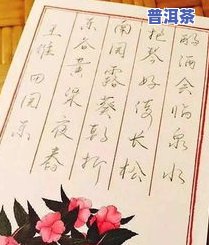 普洱茶
酌酒会临泉水
抱琴好倚长松
南园露葵朝折
东谷黄粱夜舂
王维 田园乐